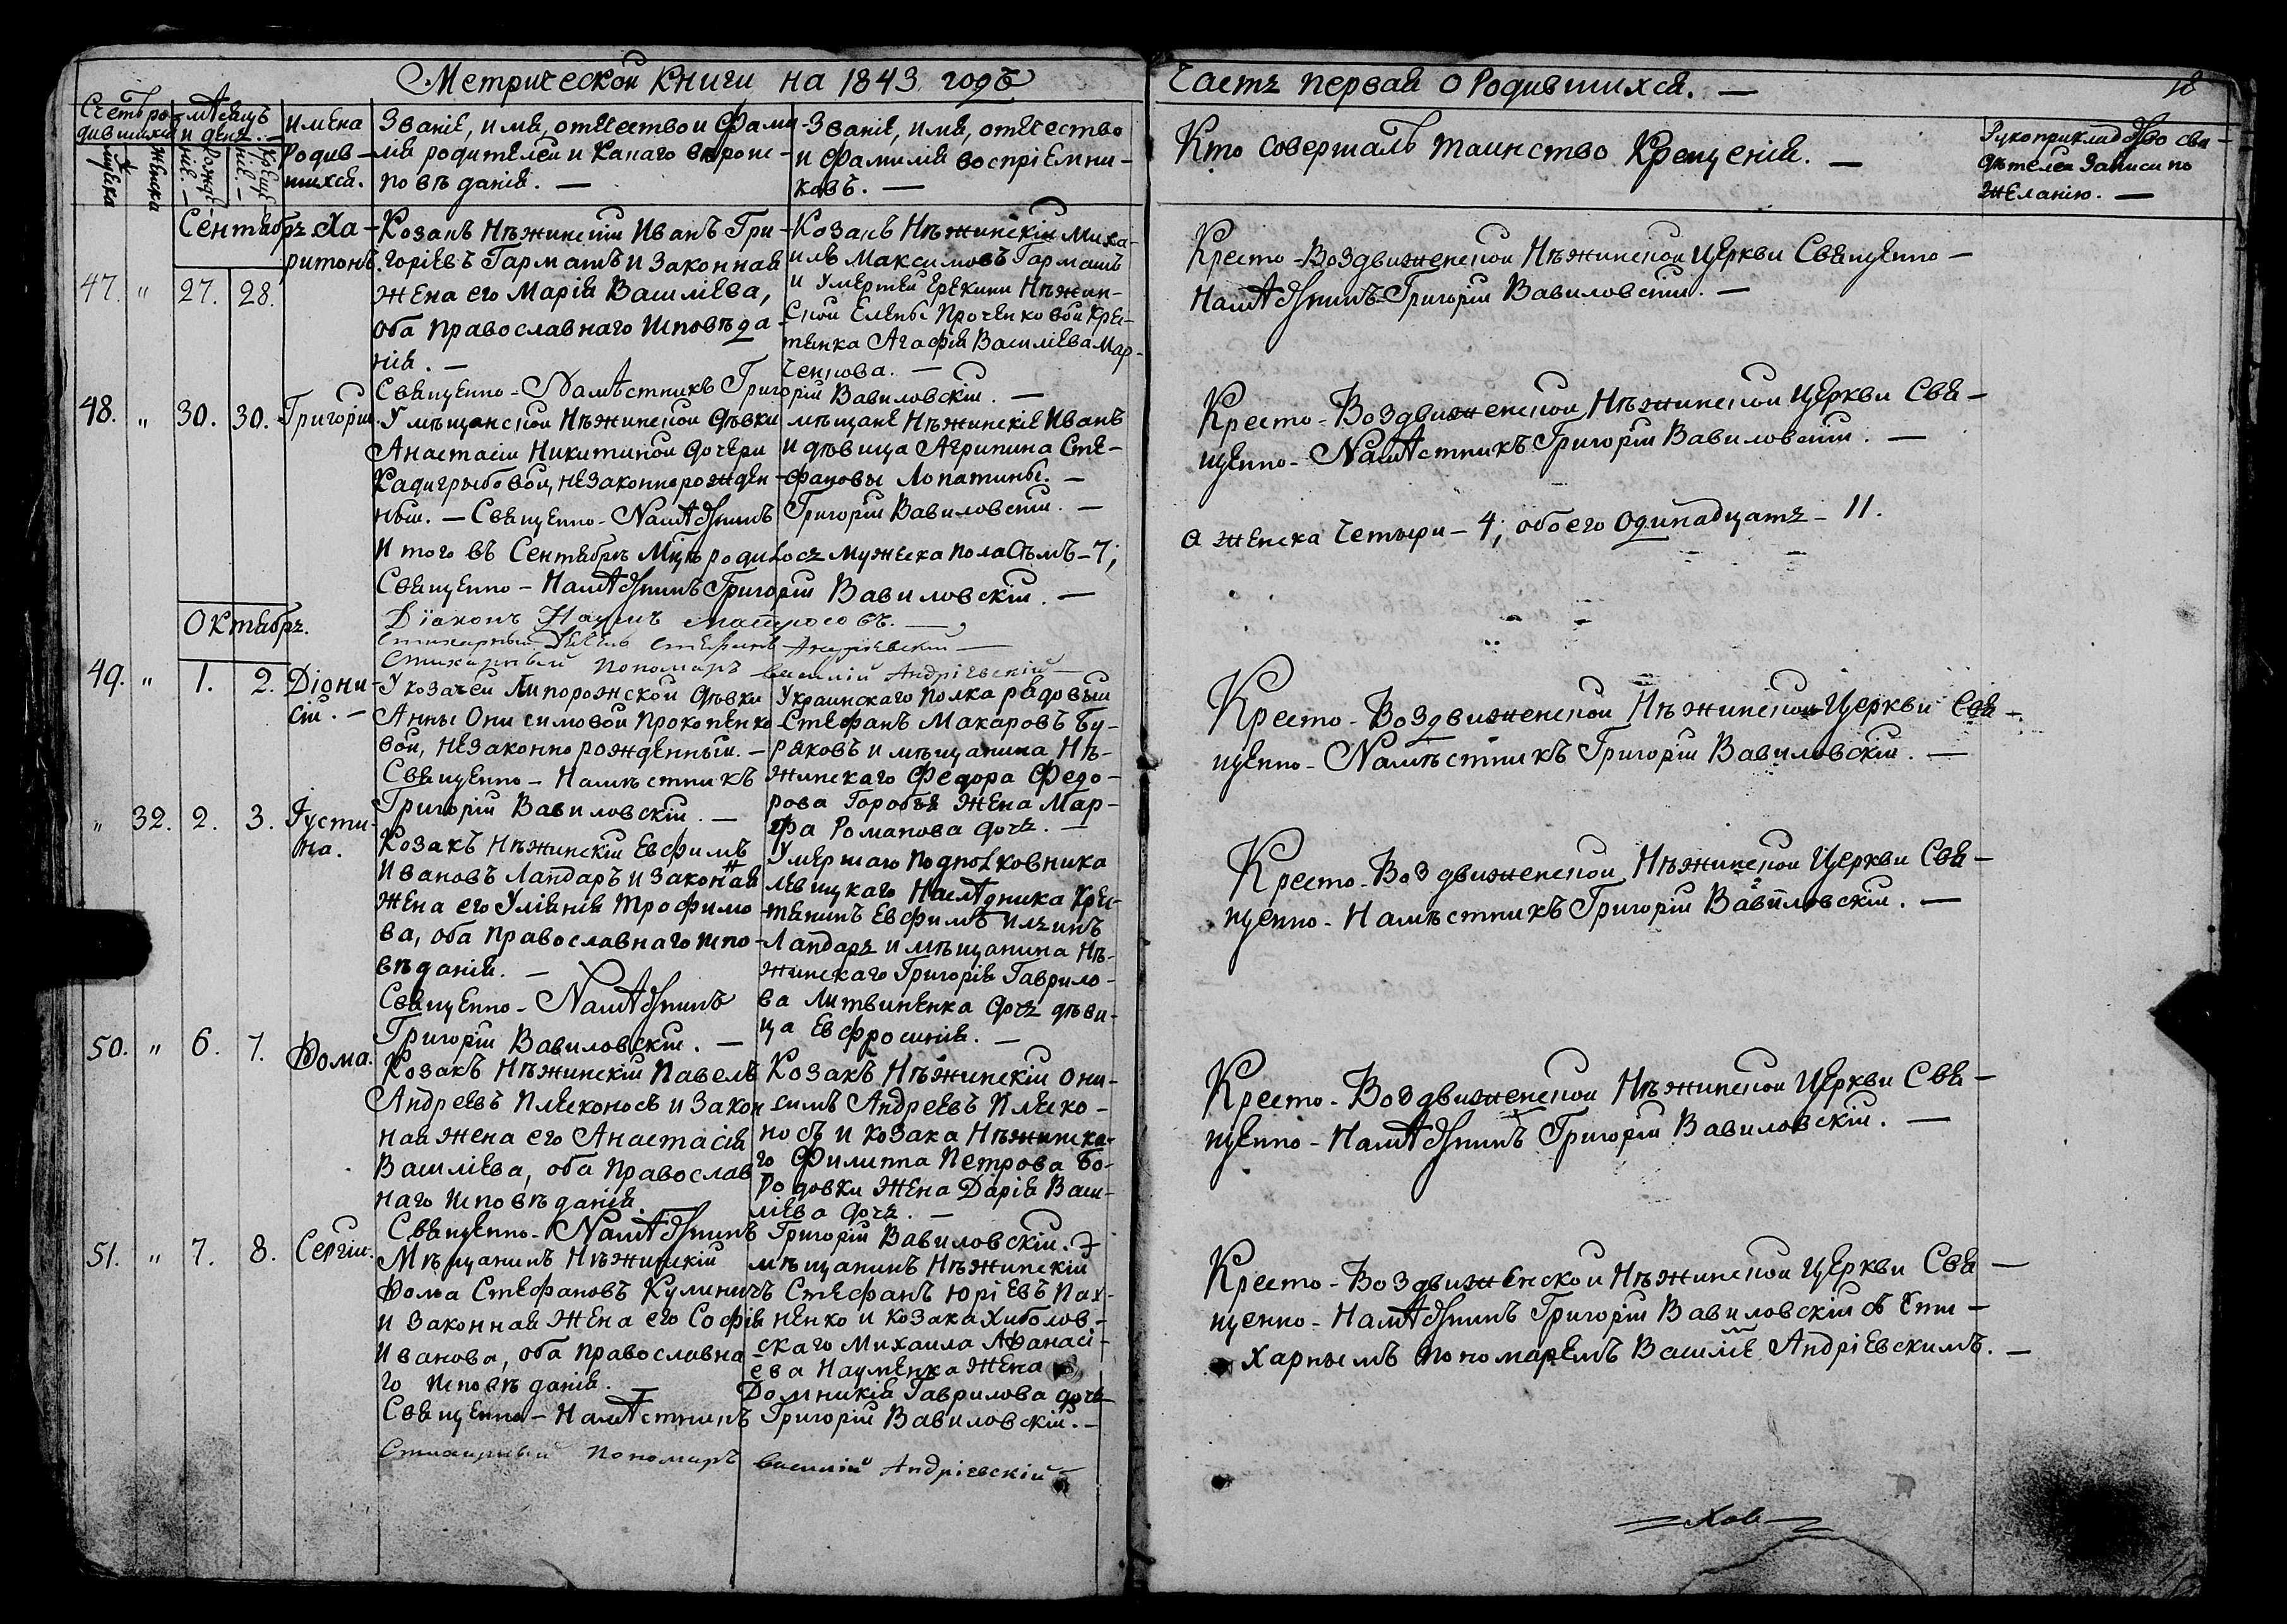 Метрической Книги на 1843 годъ
Часть первая о Родившихся. —
18
Счетъ ро-
дившихся
Мужеска
Женска
Мѣсяцъ
и день. —
Рожде-
нія. —
Креще-
нія. —
имена
Родив-
шихся.
Званіе, имя, отчество и Фами-
лія родителей и Какаго вѣроис-
повѣданія. —
Званіе, имя, отчество
и Фамилія воспріемни-
ковъ. —
Кто совершалъ таинство Крещенія. —
Рукоприкладство сви-
дѣтелей записи по
желанію. —
Сентябрь
47. " 27. 28.
Ха-
ритонъ.
Козакъ Нѣжинскій Иванъ Гри-
горіевъ Гарматъ и Законная
жена его Марія Василіева,
оба православнаго исповѣда-
нія. —
Козакъ Нѣжинскій Миха-
илъ Максимовъ Гарматъ
и умершей Грекини Нѣжин-
ской Елены Проченковой Крес-
тянка Агафія Василіева Мар-
ченкова. —
Священно-Намѣстникъ Григорій Вавиловскій. —
Кресто-Воздвиженской Нѣжинской Церкви Священно-
Намѣстникъ Григорій Вавиловскій. —
48. " 30. 30. Григорій.
У мѣщанской Нѣжинской дѣвки
Анастасіи Никитиной дочери
Кадигрыбовой, незаконнорожден-
ный. — Священно-Намѣстникъ Григорій Вавиловскій. —
мѣщане Нѣжинскіе Иванъ
и дѣвица Агрипина Сте-
фановы Лопатины. —
Кресто-Воздвиженской Нѣжинской Церкви Свя-
щенно-Намѣстникъ Григорій Вавиловскій. —
Итого въ Сентябрѣ Мцѣ родилось мужеска пола Сѣмъ-7;
а женска Четыри-4; обоего Одинадцать-11.
Священно-Намѣстникъ Григорій Вавиловскій. —
Діаконъ Наумъ Матросовъ. —
Стихарный Стефанъ Андріевскій —
Стихарный пономарь Василій Андріевскій —
Октябрь.
49. " 1. 2. Діони-
сій. —
У козачей Липорожской дѣвки
Анны Онисимовой Прокопенко-
вой, незаконно рожденный. —
Священно-Намѣстникъ
Григорій Вавиловскій. —
Украинскаго полка рядовый
Стефанъ Макаровъ Бу-
ряковъ и мѣщанина Нѣ-
жинскаго Федора Федо-
рова Горобъя жена Мар-
фа Романова дочь. —
Кресто-Воздвиженской Нѣжинской Церкви Свя-
щенно-Намѣстникъ Григорій Вавиловскій. —
" 32. 2. 3. Іусти-
на.
Козакъ Нѣжинскій Евфимъ
Ивановъ Лапдаръ и Законная
жена его Уліянія Трофимо-
ва, оба православнаго испо-
вѣданія. —
Священно-Намѣстникъ
Григорій Вавиловскій. —
Умершаго подполковника
Левицкаго Наслѣдника Крес-
тянинъ Евфимъ Илъинъ
Лапдаръ и мѣщанина Нѣ-
жинскаго Григорія Гаврило-
ва Литвиненка дочь дѣви-
ца Евфросинія. —
Кресто-Воздвиженской Нѣжинской Церкви Свя-
щенно-Намѣстникъ Григорій Вавиловскій. —
50. " 6. 7. Фома.
Козакъ Нѣжинскій Павелъ
Андреевъ Плесконосъ и Закон
ная жена его Анастасія
Василіева, оба Православ
наго исповѣданія.
Козакъ Нѣжинскій Они-
симъ Андреевъ Плеско-
носъ и козака Нѣжинска-
го Филиппа Петрова Бо-
родовки жена Дарія Васи-
ліева дочь. —
Священно-Намѣстникъ Григорій Вавиловскій.
Кресто-Воздвиженской Нѣжинской Церкви Свя-
щенно-Намѣстникъ Григорій Вавиловскій. —
51. " 7. 8. Сергій.
Мѣщанинъ Нѣжинскій
Фома Стефановъ Кулиничъ
и Законная жена его Софія
Иванова, оба православна
го исповѣданія. —
мѣщанинъ Нѣжинскій
Стефанъ Юріевъ Пах-
ненко и козака Хиболов-
скаго Михаила Афанасі-
ева Науменка жена
Домникія Гаврилова дочь
Священно-Намѣстникъ Григорій Вавиловскій. —
Стихарный пономарь Василій Андріевскій
Кресто-Воздвиженской Нѣжинской Церкви Свя-
щенно-Намѣстникъ Григорій Вавиловскій съ Сти-
харнымъ пономаремъ Василіе Андріевскимъ. —